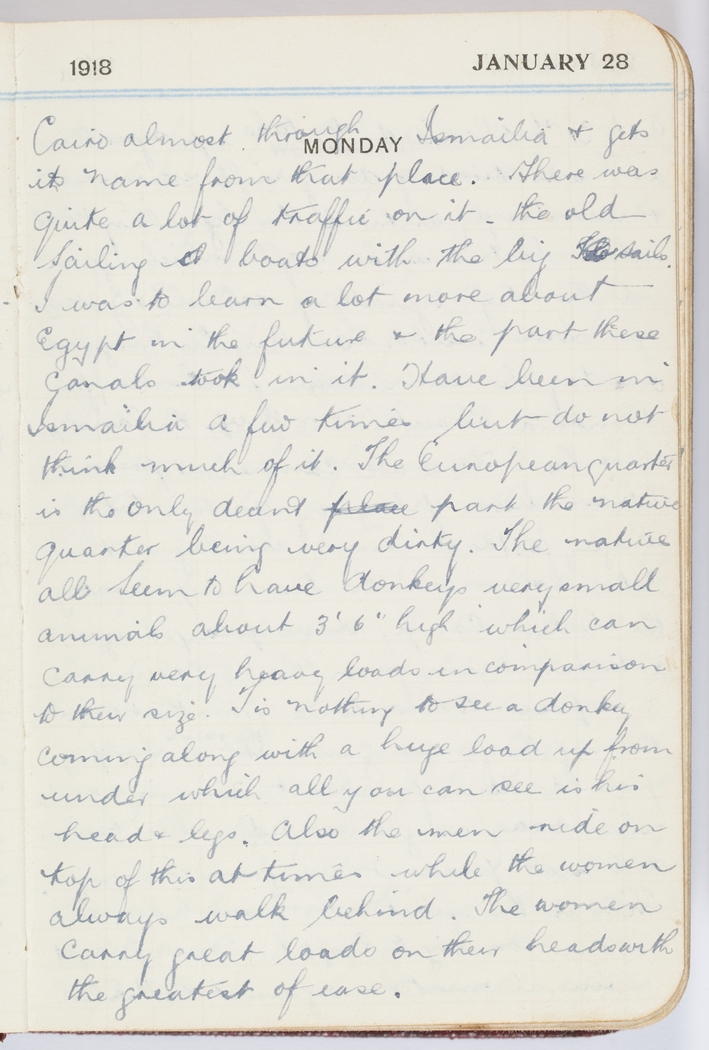 1918 JANUARY 28
MONDAY
Cairo almost through Ismailia & gets
its name from that place. There was
quite a lot of traffic on it - the old
sailing boats with the big sails.
I was to learn a lot more about
Egypt in the future & the part these
Canals took in it. Have been in
Ismailia a few times but do not
think much of it. The European quarter
is the only decent place part the native
quarter being very dirty. The native
all seem to have donkeys very small
animals about 3' 6" high which can
carry very heavy loads in comparison
to their size. Tis nothing to see a donkey
coming along with a huge load up from
under which all you can see is his
head & legs. Also the men ride on
top of this at times while the women
always walk behind. The women
carry great loads on their heads with
the greatest of ease.